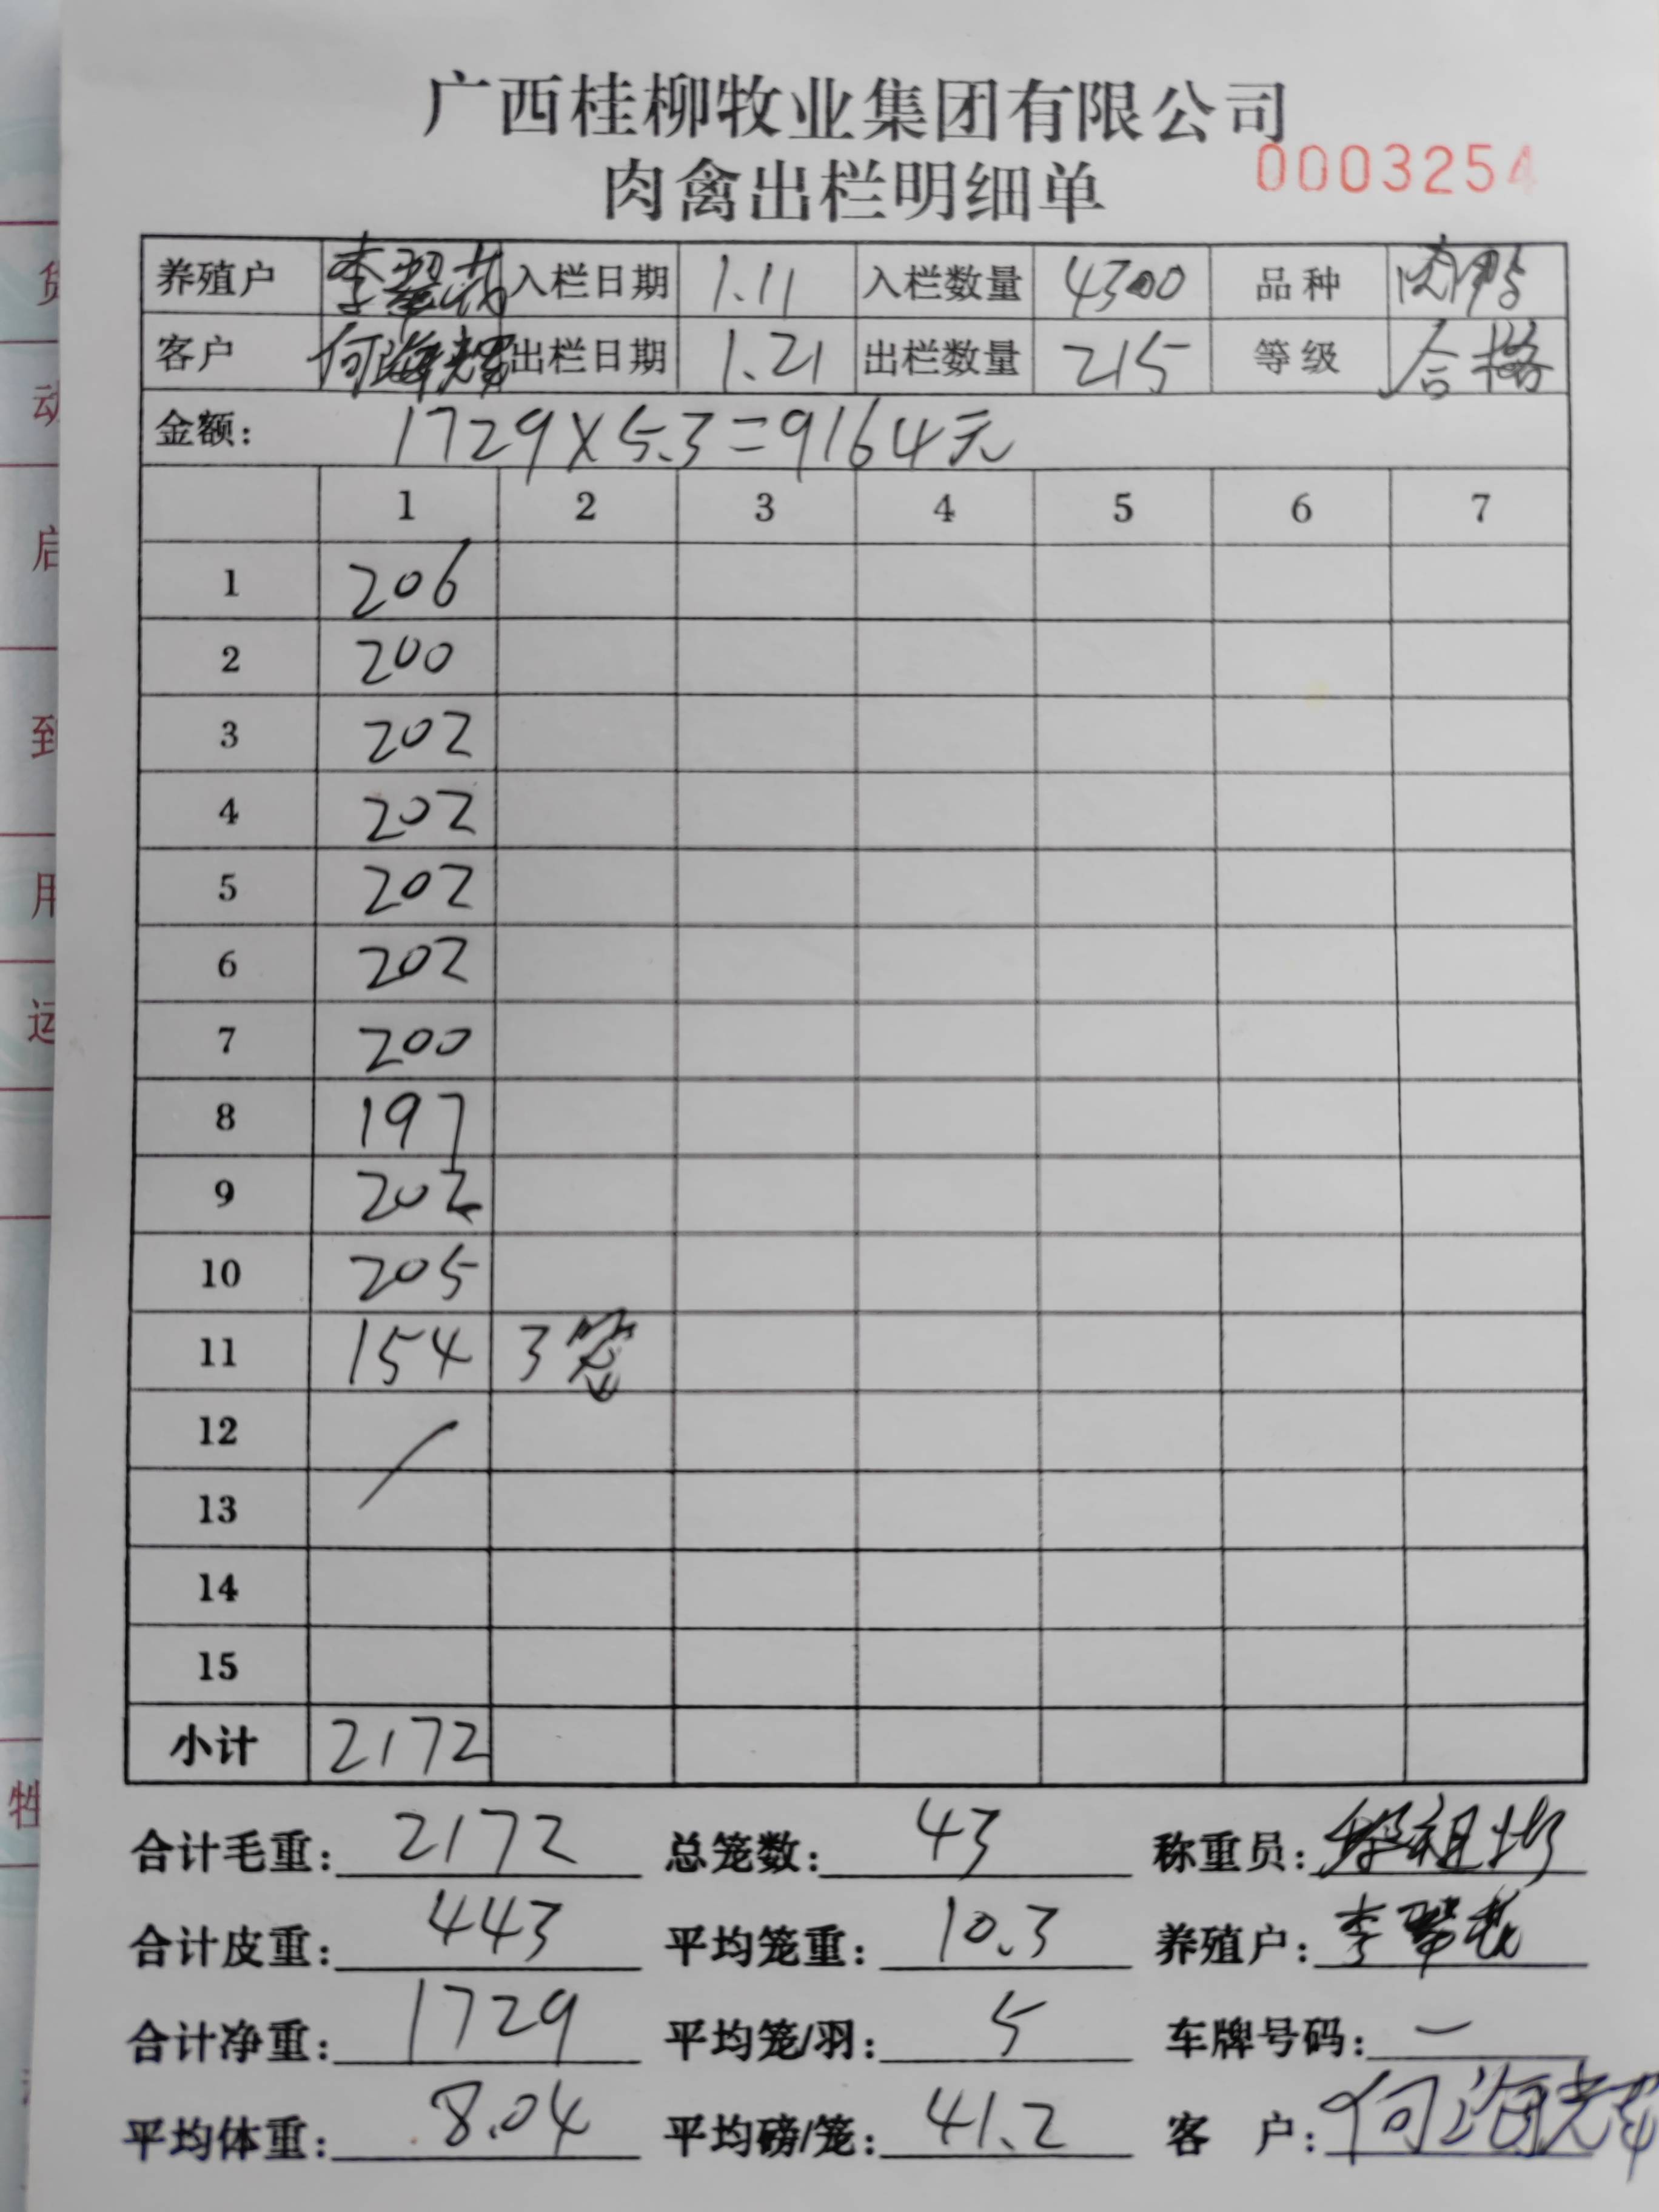 广西桂柳牧业集团有限公司
肉禽出栏明细单 0003254
养殖户 李翠 入栏日期 1.11 入栏数量 4300 品种 肉鸭
客户 何海辉 出栏日期 1.21 出栏数量 215 等级 合格
金额: 1729×5.3=9164元
1 2 3 4 5 6 7
1 206
2 200
3 202
4 202
5 202
6 202
7 200
8 197
9 202
10 205
11 154 3笼
12
13
14
15
小计 2172
合计毛重: 2172 总笼数: 43 称重员: 祖
合计皮重: 443 平均笼重: 10.3 养殖户: 李翠
合计净重: 1729 平均笼/羽: 5 车牌号码: 一
平均体重: 8.04 平均磅/笼: 41.2 客 户: 何海辉
货
动
启
到
用
运
牲